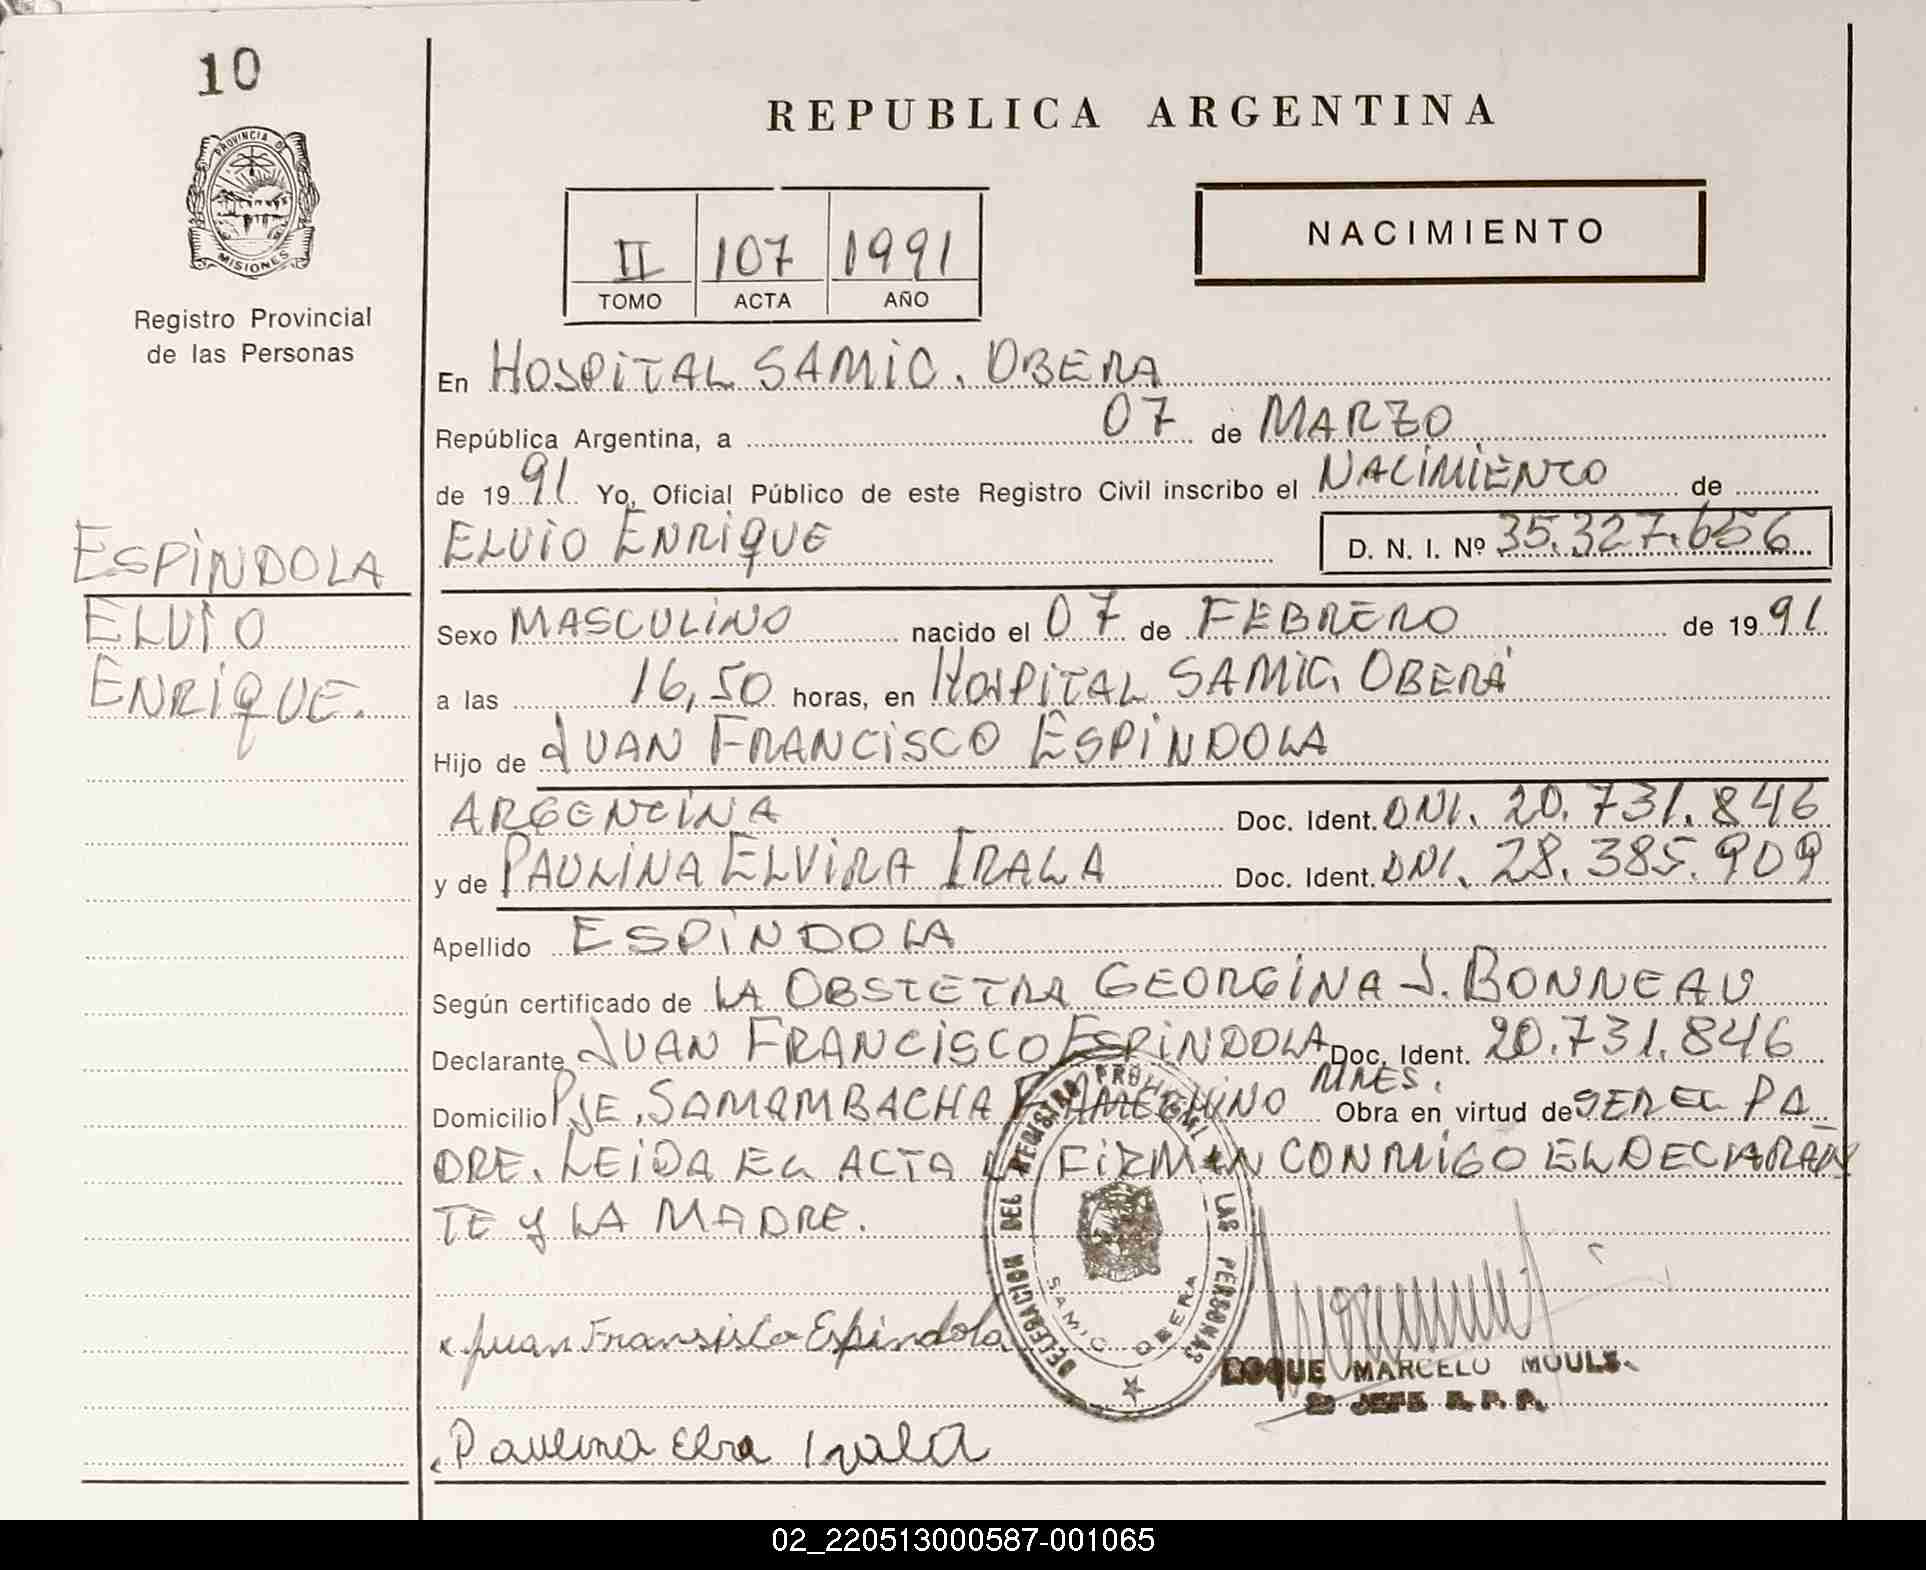 10
PROVINCIA DE
MISIONES
Registro Provincial
de las Personas
ESPINDOLA
ELVIO
ENRIQUE.
REPUBLICA ARGENTINA
II 107 1991
TOMO ACTA AÑO
NACIMIENTO
En HOSPITAL SAMIC. OBERA
República Argentina, a 07 de MARZO
de 1991 Yo, Oficial Público de este Registro Civil inscribo el NACIMIENTO de
ELVIO ENRIQUE D. N. I. Nº 35.327.656
Sexo MASCULINO nacido el 07 de FEBRERO de 1991
a las 16,50 horas, en HOSPITAL SAMIC. OBERÁ
Hijo de JUAN FRANCISCO ESPINDOLA
ARGENTINA Doc. Ident. DNI. 20.731.846
y de PAULINA ELVIRA IRALA Doc. Ident. DNI. 28.385.909
Apellido ESPINDOLA
Según certificado de LA OBSTETRA GEORGINA J. BONNEAU
Declarante JUAN FRANCISCO ESPINDOLA Doc. Ident. 20.731.846
Domicilio PJE. SAMAMBACHA MNES. Obra en virtud de SER EL PA
DRE. LEIDA EL ACTA FIRMAN CONMIGO EL DECLARAN
TE Y LA MADRE.
DELEGACION DEL REGISTRO PROVINCIAL LAS PERSONAS
SAMIC OBERA
Juan Fransisco Espindola
ROQUE MARCELO
2º JEFE R. P. P.
Paulina Elva Irala
02_220513000587-001065